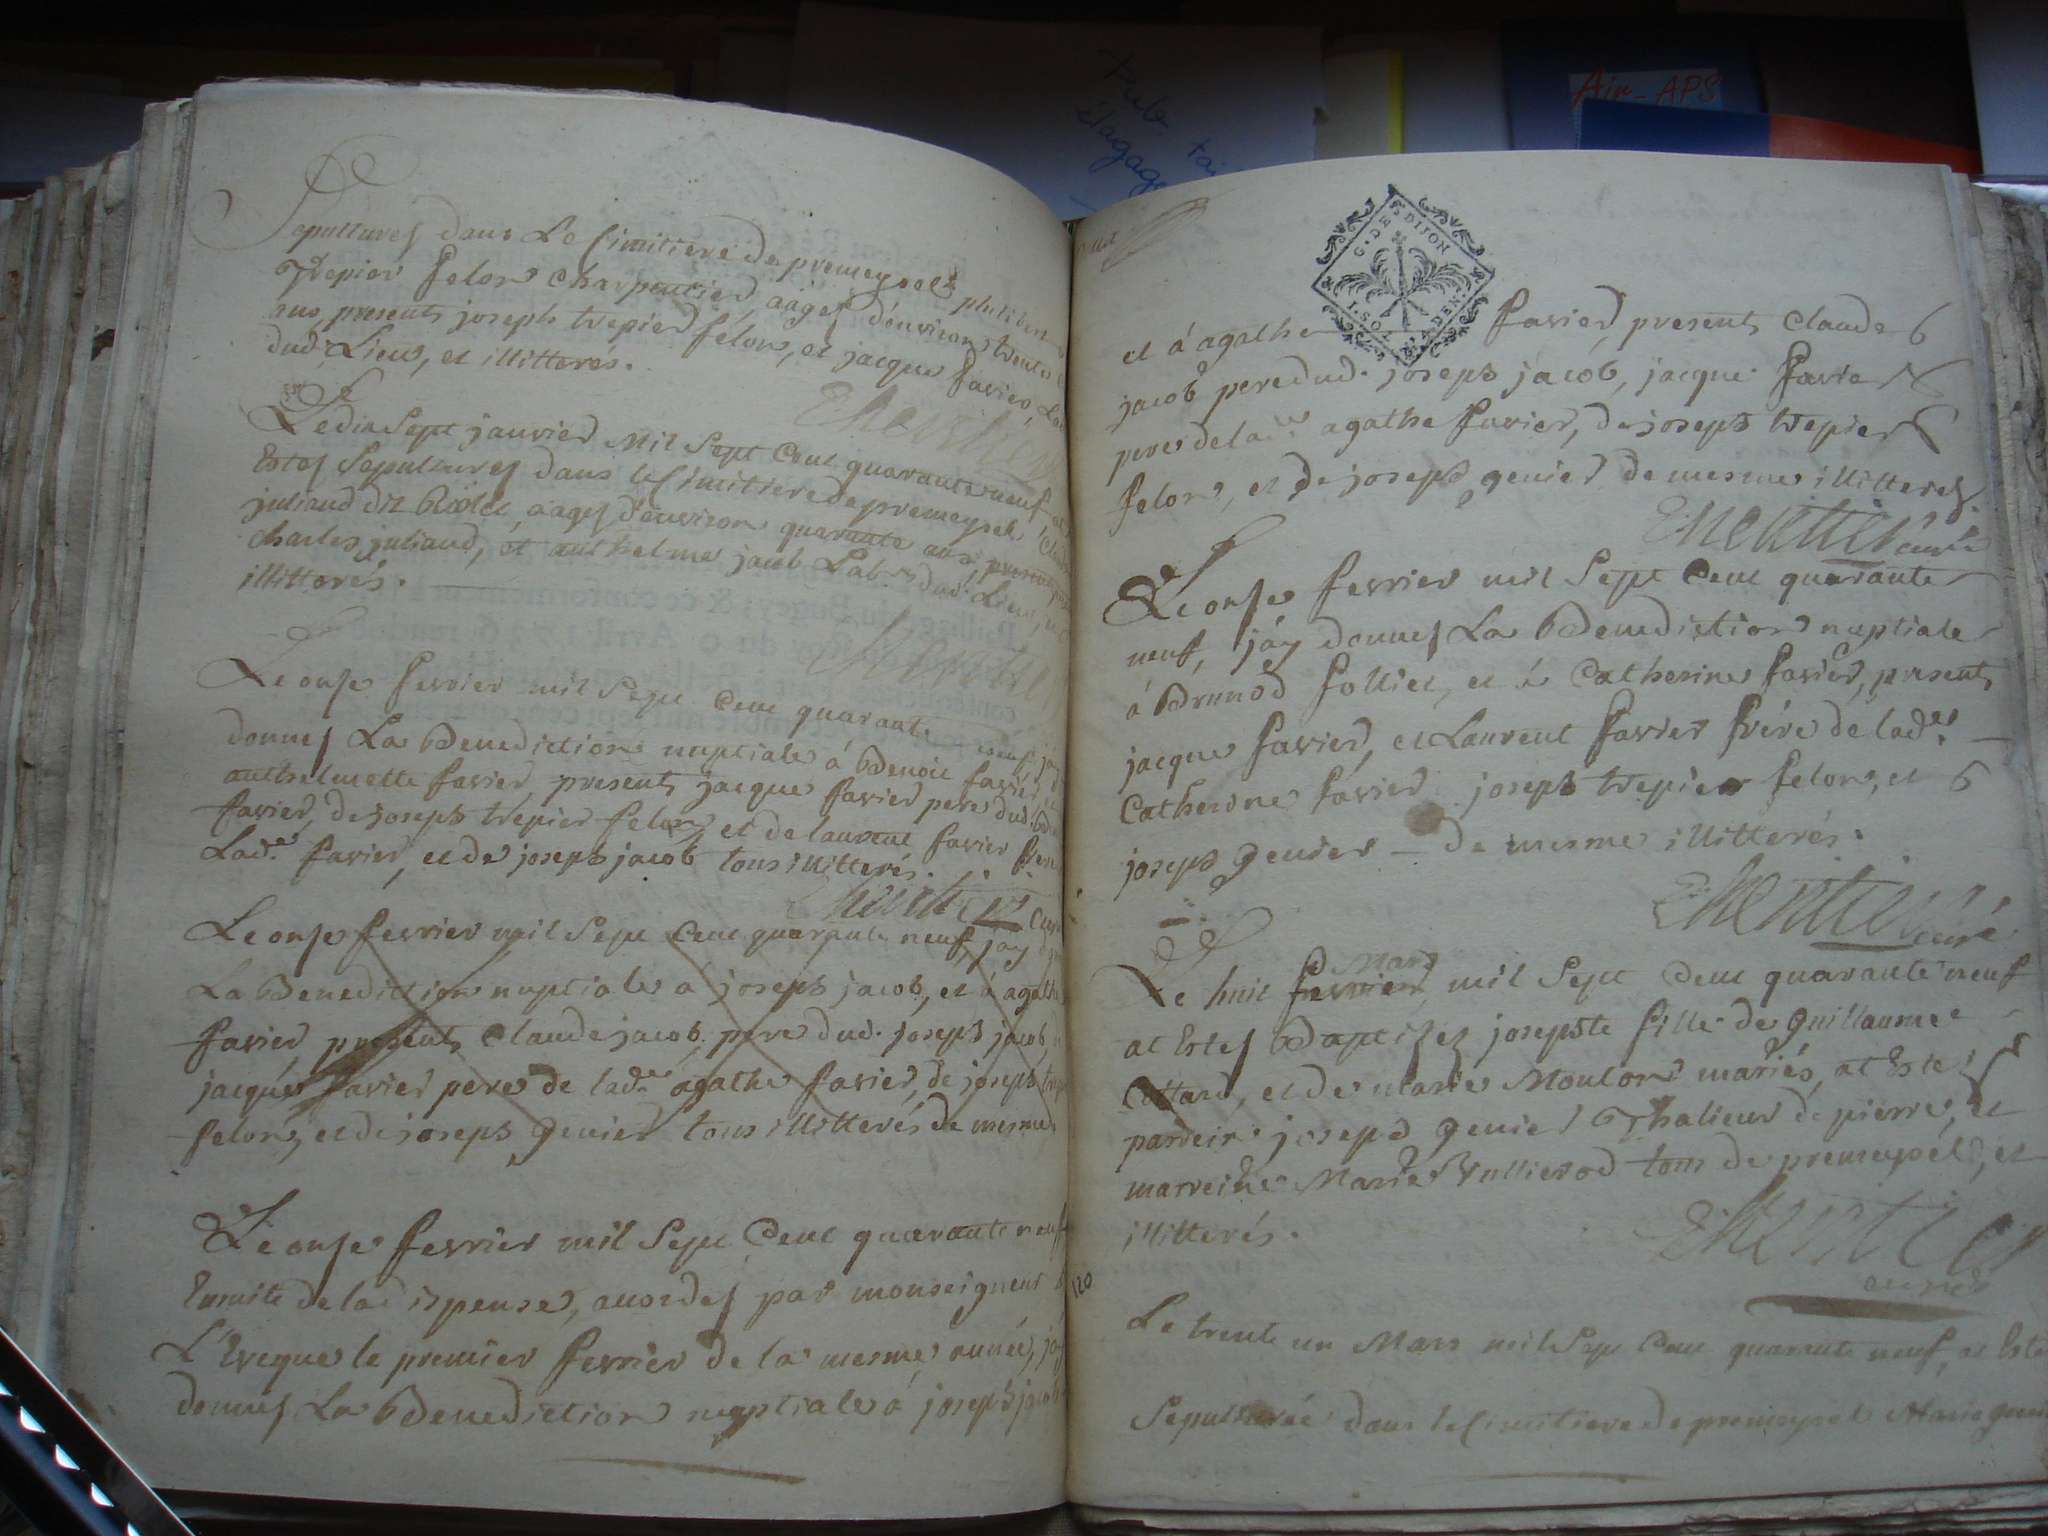 Sepulturez dans Le Cimitiere de premeysel philibert
Trepier felon charpentier, aagez d'environ trente
ans, presents joseph trepier felon, et jacque favier, Lab
dud. Lieu, et illitterés.
Le dix Sept janvier Mil Sept Cent quarante neuf at
Estez Sepulturez dans le Cimitiere de premeysel Claude
juliand dit aagez d'environ quarante ans, presents
charles juliand, et anthelme jacob Lab.rs dud. Lieu,
illitterés.
Le onze fevrier mil Sept Cent quarante neuf, jay
donnez La Benediction nuptiale á Benoit favier, et
anthelmette favier, presents jacque favier pere dud.
favier, de joseph trepier felon, et de laurent favier frere
Lad.e favier, et de joseph jacob tous illitterés.
Le onze fevrier mil Sept Cent quarante neuf, jay
La Benediction nuptiale á joseph jacob, et á agathe
favier, presents Claude jacob pere dud. joseph jacob
jacque favier pere de lad.e agathe favier, de joseph trep
felon, et de joseph genier tous illitterés de mesme
Le onze fevrier mil Sept Cent quarante neuf
Ensuite de la dispense, accordez par monseigneur
L'Eveque le premier fevrier de la mesme année, jay
donnez La Benediction nuptiale á joseph jacob
G. DE DIJON
1. SOL 4. DEN.
et á agathe favier, presents Claude
jacob pere dud. joseph jacob, jacque favier
pere de lad.e agathe favier, de joseph trepier
felon, et de joseph genier de mesme illitterez.
curé
Le onze fevrier mil Sept Cent quarante
neuf, jáy donnez La Benediction nuptiale
á Brunod folliet, et á Catherine favier, presents
jacque favier, et Laurent favier frére de lad.e
Catherine favier, joseph trepier felon, et
joseph genier de mesme illitterés.
curé
Mars
Le huit fevrier mil Sept Cent quarante neuf
at Estez Baptizez josepte fille de guillaume
Cottard, et de marie Mouton mariés, at Este
parrein joseph genier Thalieur de pierre, et
marreine Marie Vullierod tous de premeysél, et
illitterés.
curé
120
Le trente un Mars mil Sept Cent quarante neuf, at Este
Sepulturée dans le Cimitiere de premeysel Marie
Pub.
Elagage
Ain-APS